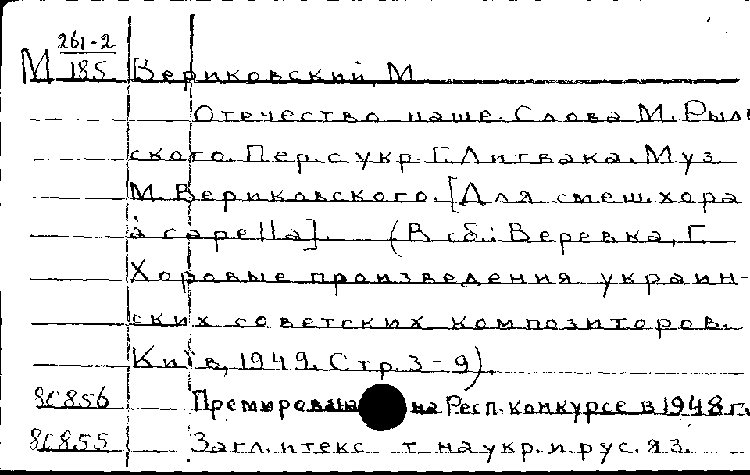 М 261-2
185 Вериковский, М.
Отечество наше. Слова М. Рыль
ского. Пер. с укр. Г. Литвака. Муз
М. Вериковского. [Для смеш. хора
à capella]. (В сб.: Веревка, Г.
Хоровые произведения украин-
ских советских композиторов.
Київ, 1949. Стр. 3-9).
Премирована на Респ. конкурсе в 1948 г.
Загл. и текст на укр. и рус. яз.